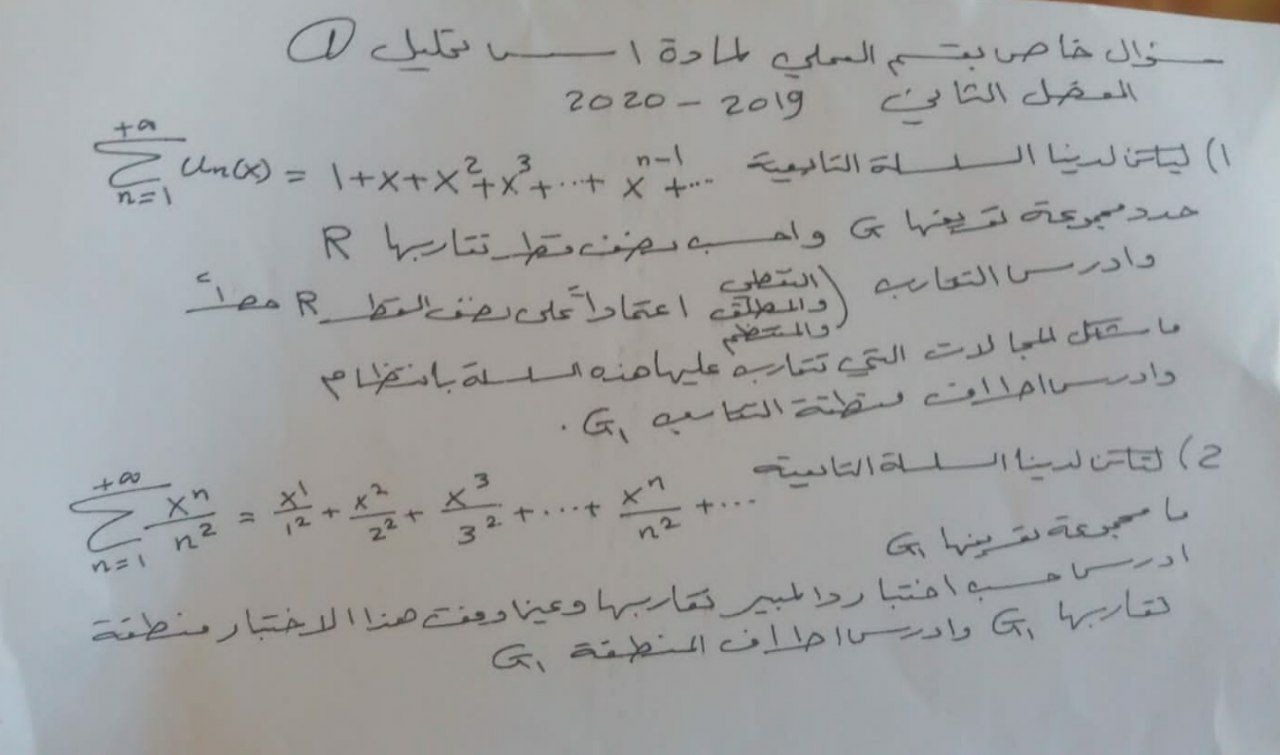 سؤال خاص بقسم العملي لمادة اسس تحليل ①
الفصل الثاني 2019 - 2020
1) ليكن لدينا السلسلة التابعية \sum_{n=1}^{+\infty} U_n(x) = 1+x+x^2+x^3+...+x^{n-1}+...
حدد مجموعة تعريفها G واحسب نصف قطر تقاربها R
وادرس التقارب (النقطي والمطلق والمنتظم اعتماداً على نصف القطر R
ما شكل المجالات التي تتقارب عليها هذه السلسلة بانتظام
وادرس اطراف منطقة التقارب G_1 .
2) لتكن لدينا السلسلة التابعية \sum_{n=1}^{+\infty} \frac{x^n}{n^2} = \frac{x^1}{1^2} + \frac{x^2}{2^2} + \frac{x^3}{3^2} + ... + \frac{x^n}{n^2} + ...
ما مجموعة تعريفها G_1
ادرس حسب اختبار دالمبير تقاربها وعينا وفق هذا الاختبار منطقة
تقاربها G_1 وادرس اطراف المنطقة G_1